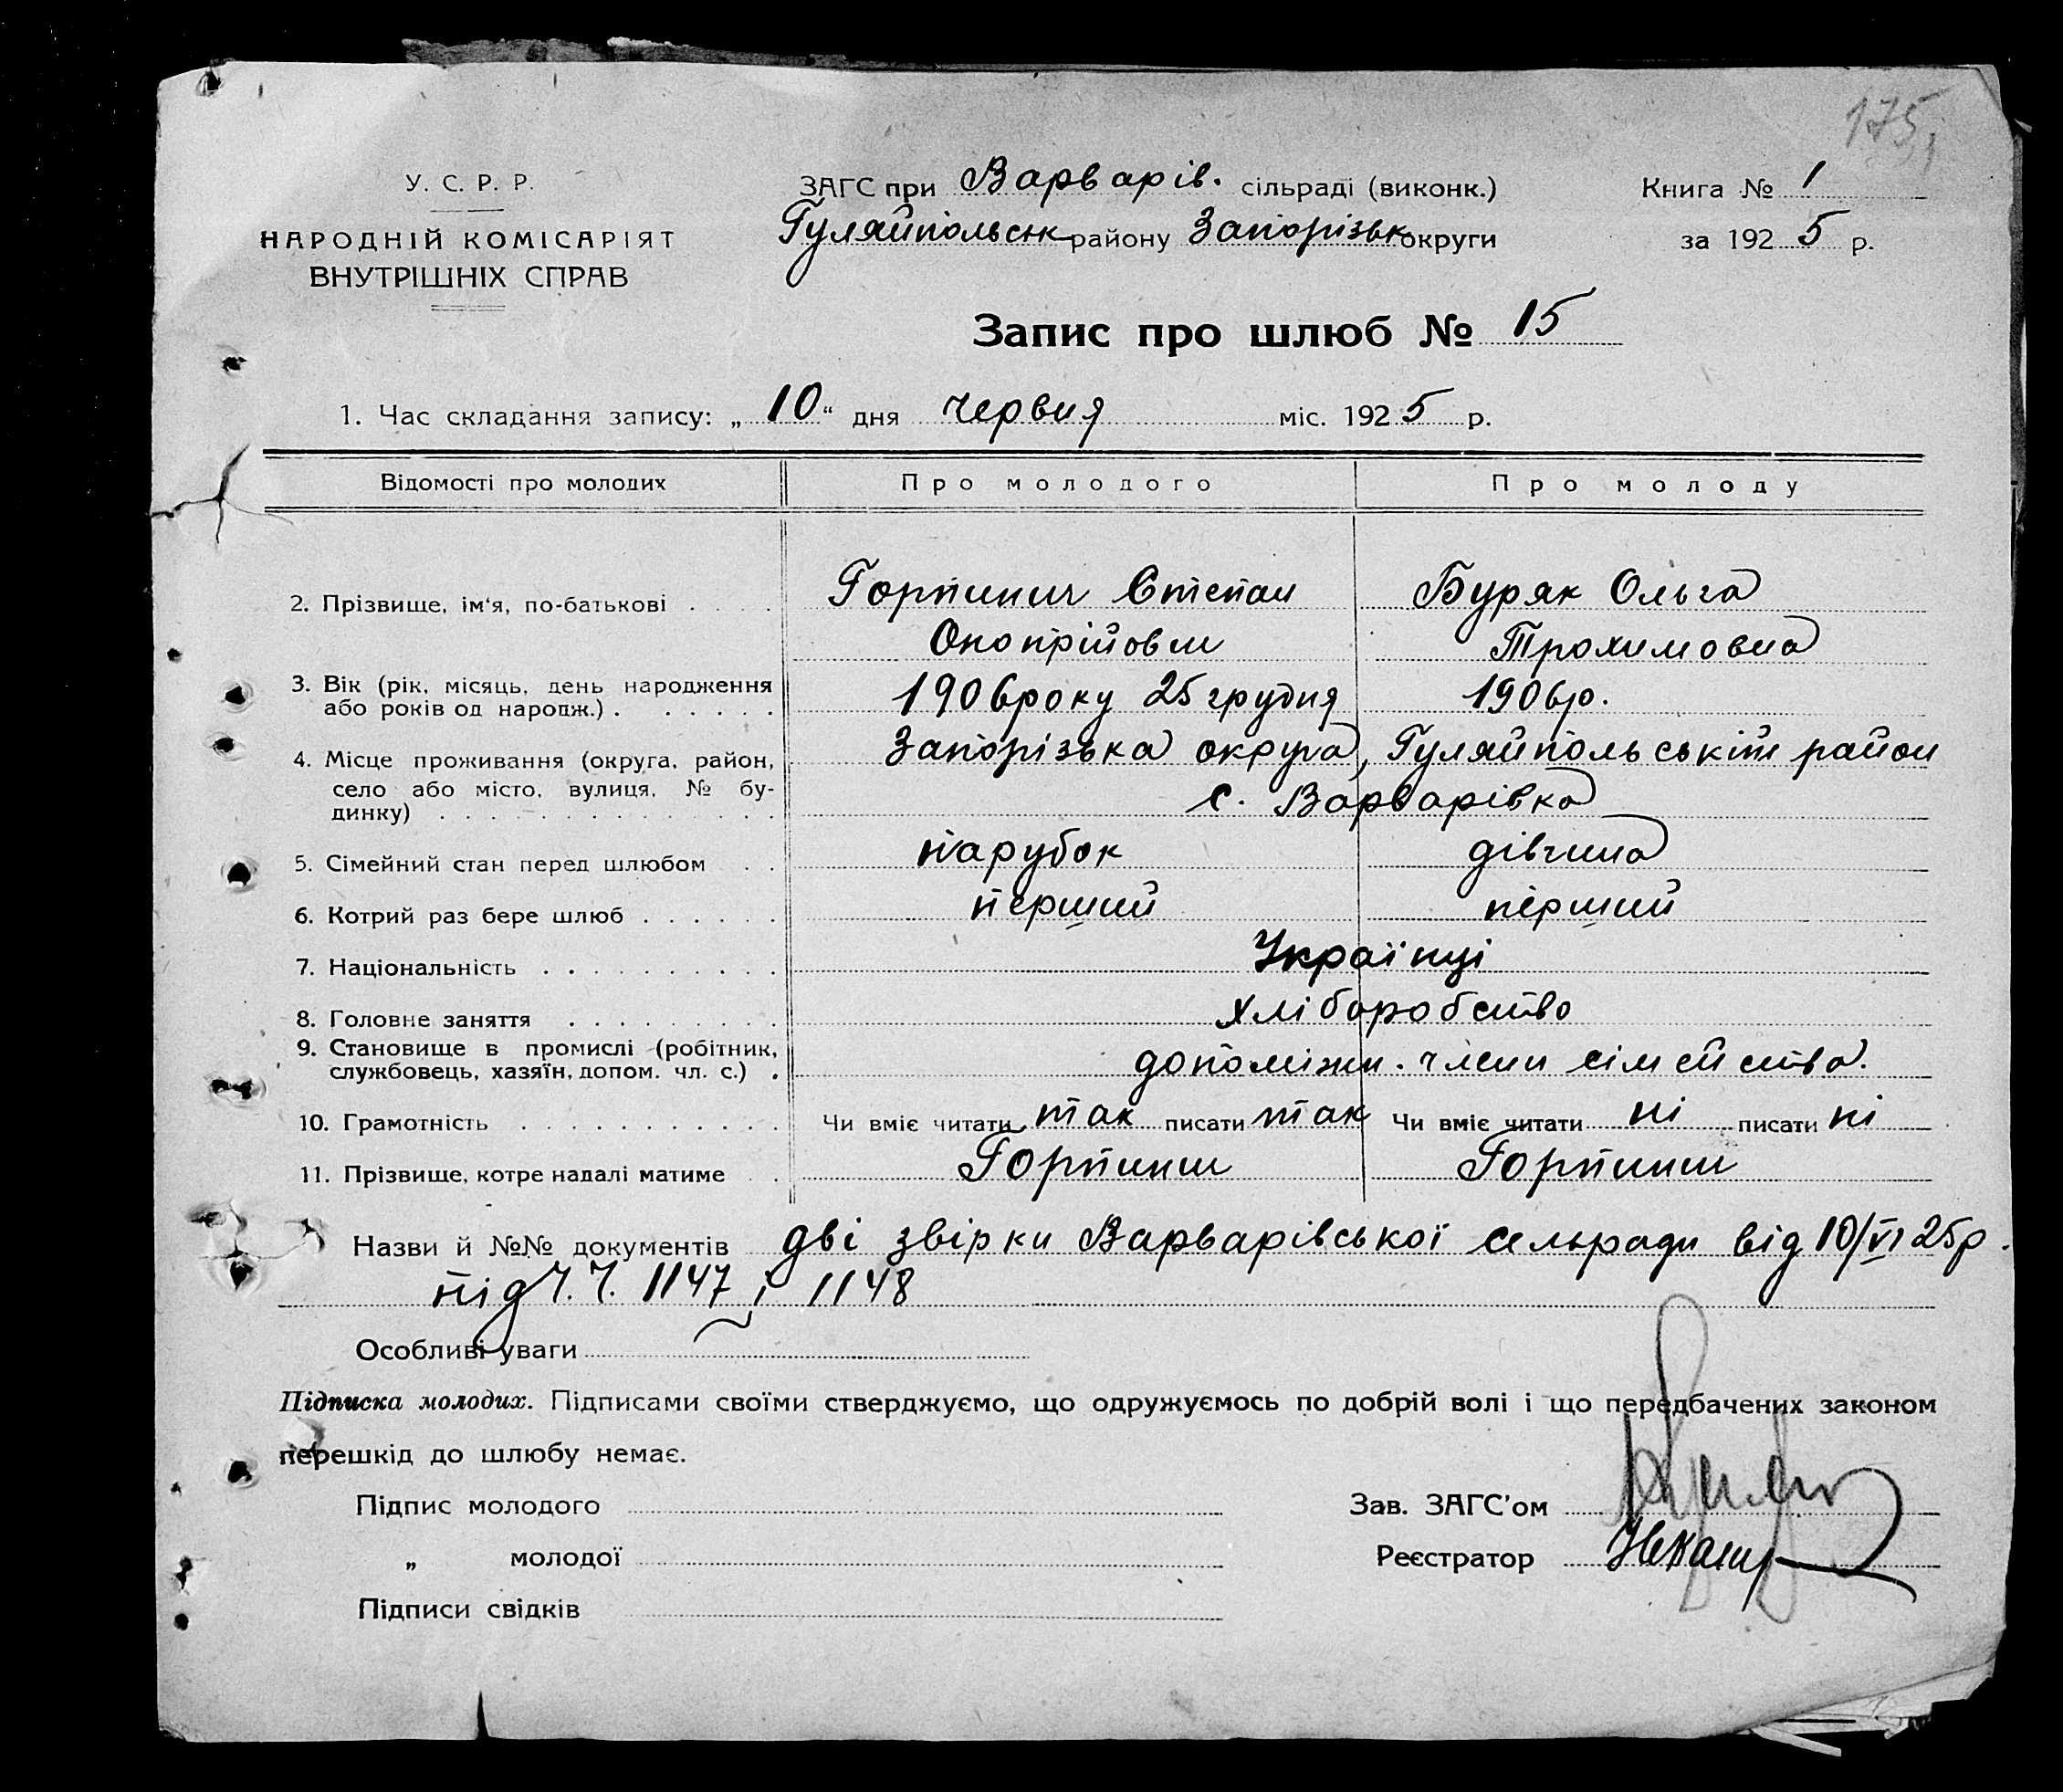 175
У. С. Р. Р.
НАРОДНІЙ КОМІСАРІЯТ
ВНУТРІШНІХ СПРАВ
ЗАГС при Варварів. сільраді (виконк.)
Гуляйпольськ району Запорізьк округи
Книга № 1
за 1925 р.
Запис про шлюб № 15
1. Час складання запису: „10“ дня червня міс. 1925 р.
Відомості про молодих Про молодого Про молоду
2. Прізвище, ім'я, по-батькові . . . . Горпинич Степан Буряк Ольга
Оноприйович Трохимовна
3. Вік (рік, місяць, день народження 1906 року 25 грудня 1906 р.
або років од народж.) . . . . . .
4. Місце проживання (округа, район, Запорізька округа, Гуляйпольський район
село або місто, вулиця, № бу- с. Варварівка
динку) . . . . . . . . . . . . . .
5. Сімейний стан перед шлюбом . . парубок дівчина
6. Котрий раз бере шлюб . . . . . . перший перший
7. Національність . . . . . . . . . . Українці
8. Головне заняття . . . . . . . . . хліборобство
9. Становище в промислі (робітник, допоміжн. члени сімейства.
службовець, хазяїн, допом. чл. с.) .
10. Грамотність . . . . . . . . . . . Чи вміє читати так писати так Чи вміє читати ні писати ні
11. Прізвище, котре надалі матиме . . Горпинич Горпинич
Назви й №№ документів дві звірки Варварівської сельради від 10/VI 25р.
під Ч.Ч. 1147 і 1148
Особливі уваги
Підписка молодих. Підписами своїми стверджуємо, що одружуємось по добрій волі і що передбачених законом
перешкід до шлюбу немає.
Підпис молодого
Зав. ЗАГС'ом
„ молодої
Реєстратор
Підписи свідків